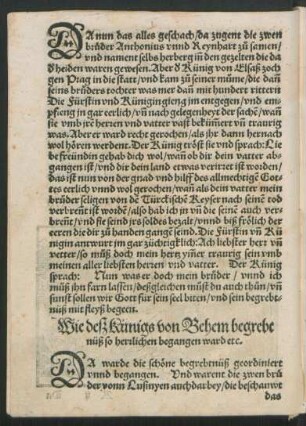 DA nun das alles geschach/da zugent die zwen
brůder Anthonius vnnd Reynhart zů samen/
vnd nament selbs herberg in den gezelten die da
d'heiden waren gewesen. Aber d' Künig von Elsaß zoch
gen Prag in die statt/vnd kam zů seiner můme/die dañ
seins brůders tochter was mer dañ mit hundert rittern
Die Fürstin vnd Künigin gieng im entgegen/vnd em-
pfieng in gar eerlich/vñ nach gelegenheyt der sachē/wañ
sie vmb ire herren vnd vatter vast bekümert vñ traurig
was. Aber er ward recht gerochen/als jhr dann hernach
wol hören werdent. Der Künig tröst sie vnd sprach: Lie
be freündin gehab dich wol/wañ ob dir dein vatter abs-
gangen ist/vnd dir dein land etwas vertriet ist worden/
das ist nun von der gnad vnd hilff des allmechtigē Got-
tes eerlich vnnd wol gerochen/wañ als dein vatter mein
brůder seligen von dē Türckischē Keyser nach seinē tod
verbrent ist wordē/also hab ich jn vñ die seinē auch ver-
brent/vnd sie seind jrs soldes bezalt/vnnd biß frölich der
eeren die dir zů handen gangē seind. Die Fürstin vñ Kü
nigin antwurt im gar züchtigklich: Ach liebster herr vñ
vetter/so můß doch mein hertz ym̃er traurig sein vmb
meinen aller liebsten herren vnd vatter. Der Künig
sprach: Nun was er doch mein brůder/vnnd ich
můß jhn farn lassen/deßgleichen můst du auch thůn/vñ
sunst sollen wir Gott für sein seel bitten/vnd sein begrebt-
nüß mit fleyß begeen.
Wie deß Künigs von Behem begrebt
nüß so herrlichen begangen ward etc.
DA warde die schöne begrebtnüß geordiniert
vnnd begangen. Vnd warent die zwen brů
der vonn Lusinyen auch darbey/die beschauwt
das